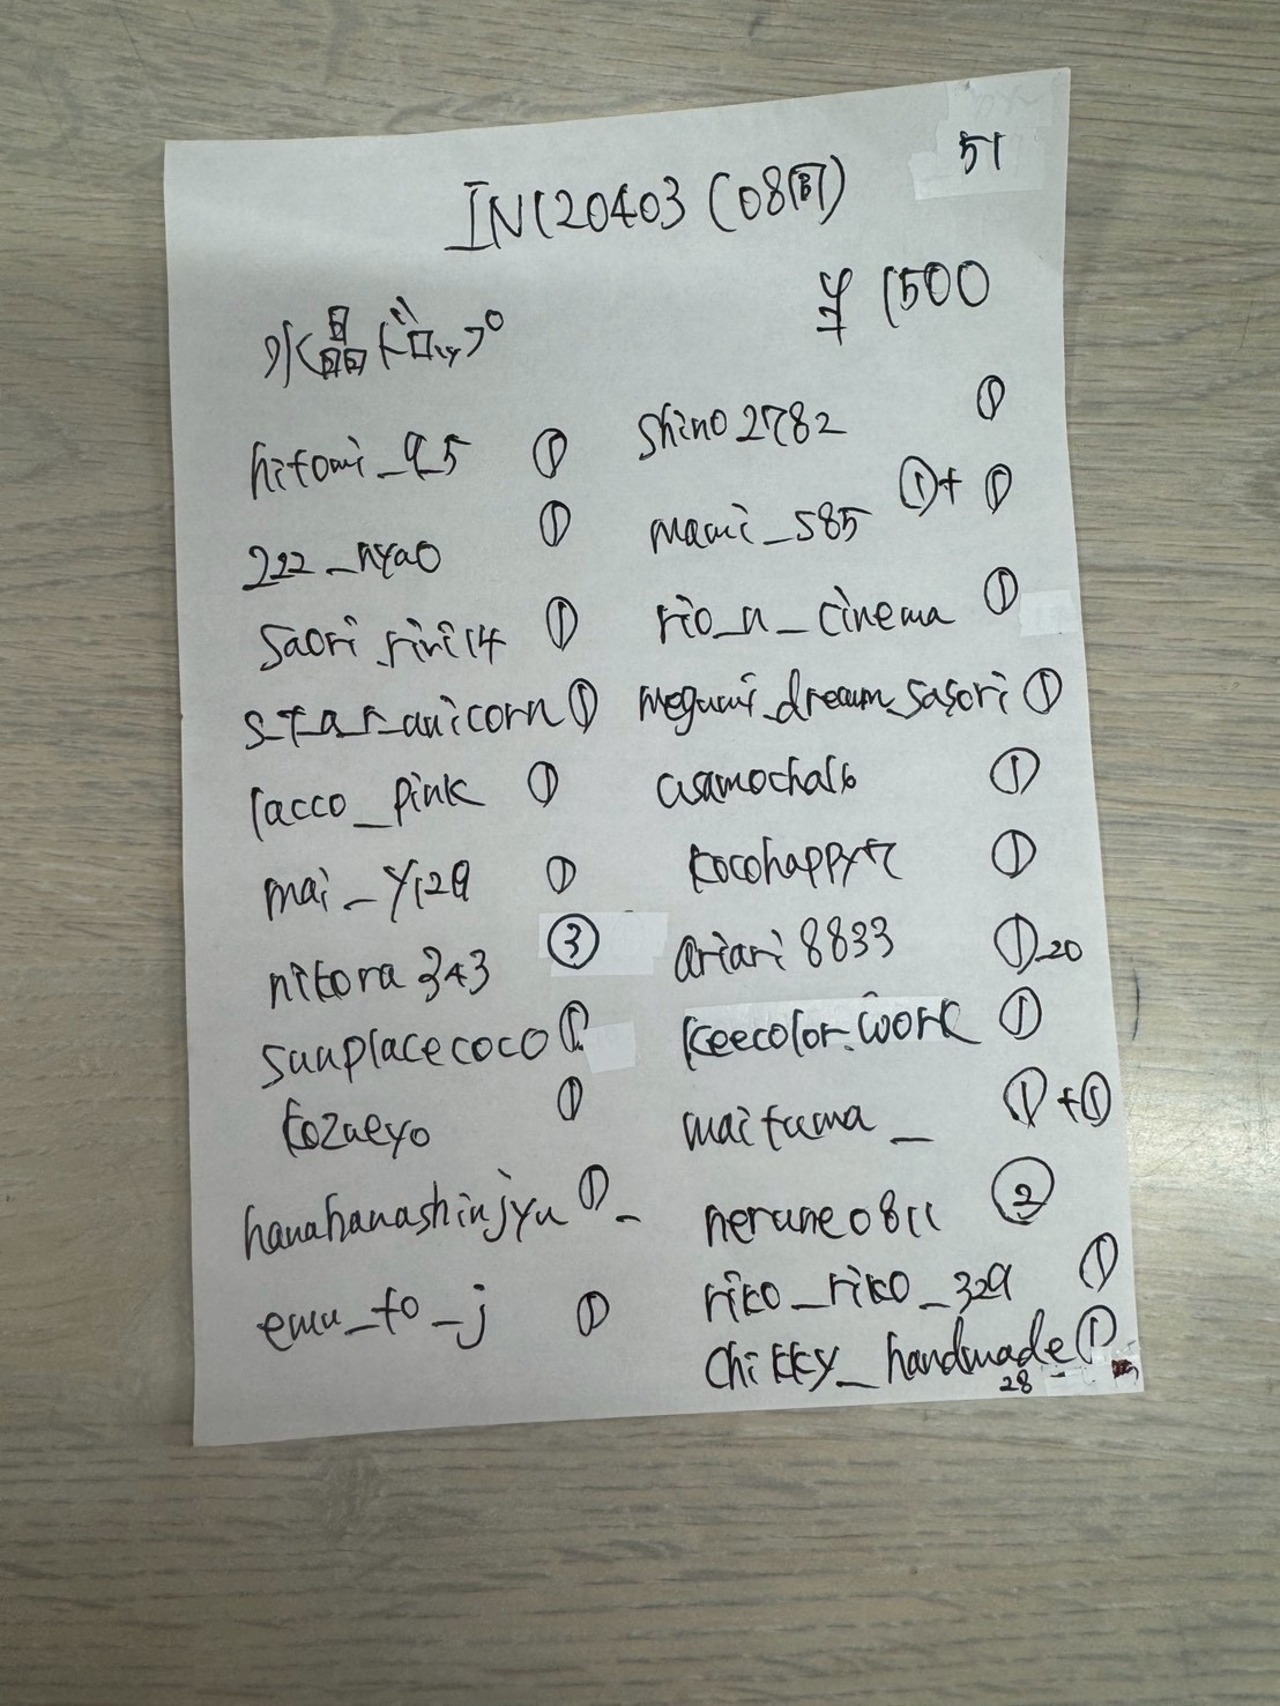 51
IN120403 (08前)
¥ 1500
水晶ドロップ
hitomi_9_5 ①
222_nyao ①
saori_riri14 ①
s_t_a_r_unicorn ①
racco_pink ①
mai_y129 ①
nikora343 ③
sunplacecoco ①
kozueyo ①
hanahanashinjyu ① _
emu_to_j ①
shino2782 ①
mami_585 ①+①
rio_n_cinema ①
megumi_dream_sasori ①
asamocha16 ①
kocohappy47 ①
ariari8833 ①-20
keecolor.work ①
maituma_ ①+①
nerune0811 ②
riko_riko_329 ①
chikky_handmade ①
28